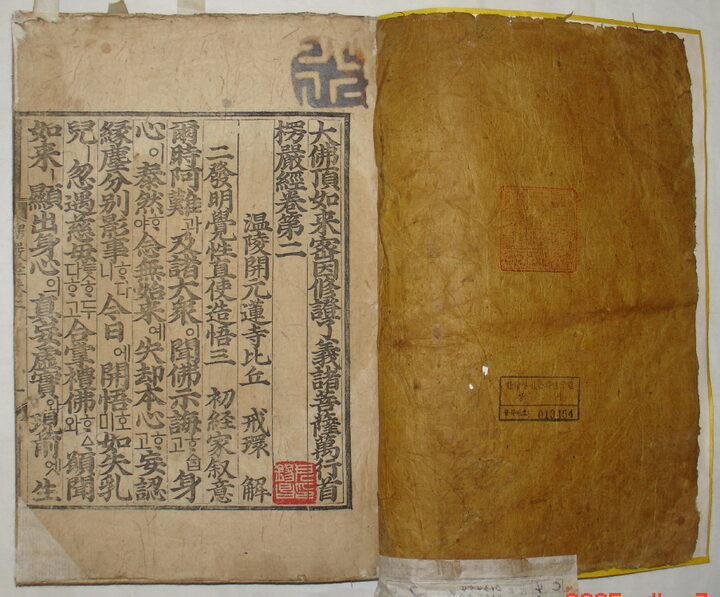 大佛頂如来密因修證了義諸菩薩萬行首
楞嚴經卷第二
温陵開元蓮寺比丘 戒環 解
二發明覺性直使造悟三 初経家叙意
爾時阿難과及諸大衆이聞佛示誨ᄒᆞᅀᆞᆸ고身
心이泰然ᄒᆞ야念無始来예失却本心ᄒᆞ고妄認
縁塵分别影事ᄒᆞ다니今日에開悟호미如失乳
兒ㅣ忽遇慈母ᄒᆞ두다ᄒᆞ고合掌禮佛ᄒᆞᅀᆞ와願聞
如来ㅣ顯出身心의真妄虛實와現前엣生
등록번호: 013454